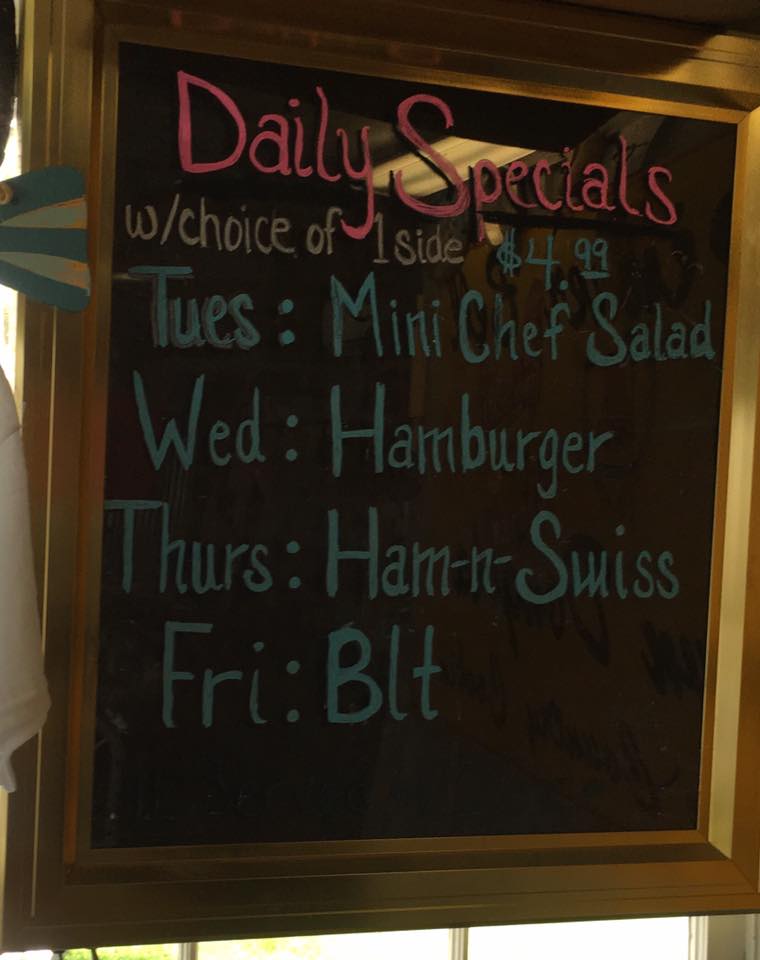 Daily Specials
w/choice of 1 side $4.99
Tues: Mini Chef Salad
Wed: Hamburger
Thurs: Ham-n-Swiss
Fri: Blt